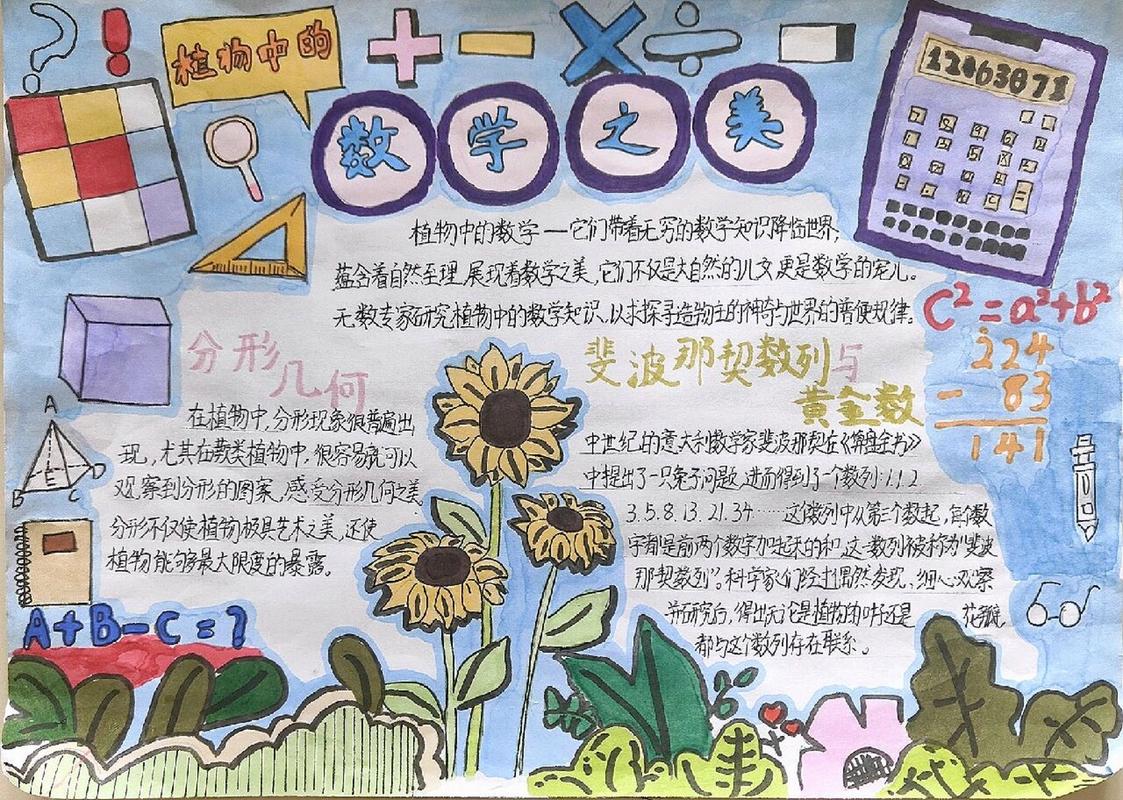 植物中的
数学之美
12463871
植物中的数学——它们带着无穷的数学知识降临世界,
蕴含着自然至理,展现着数学之美,它们不仅是大自然的儿女,更是数学的宠儿。
无数专家研究植物中的数学知识,以求探寻造物主的神奇与世界的普便规律。
C²=a²+b²
224
- 83
141
分形几何
在植物中,分形现象很普遍出
现,尤其在蕨类植物中,很容易就可以
观察到分形的图案,感受分形几何之美。
分形不仅使植物极具艺术之美,还使
植物能够最大限度的暴露。
A
B
C
A+B-C=?
斐波那契数列与
黄金数
中世纪的意大利数学家斐波那契在《算盘全书》
中提出了一只兔子问题,进而得到了一个数列:1.1.2
3.5.8.13.21.34……这个数列中从第三个数起,每个数
字都是前两个数字加起来的和,这一数列被称为"斐波
那契数列"。科学家们经过偶然发现、细心观察
并研究后,得出无论是植物的叶还是 花瓣,
都与这个数列存在联系。